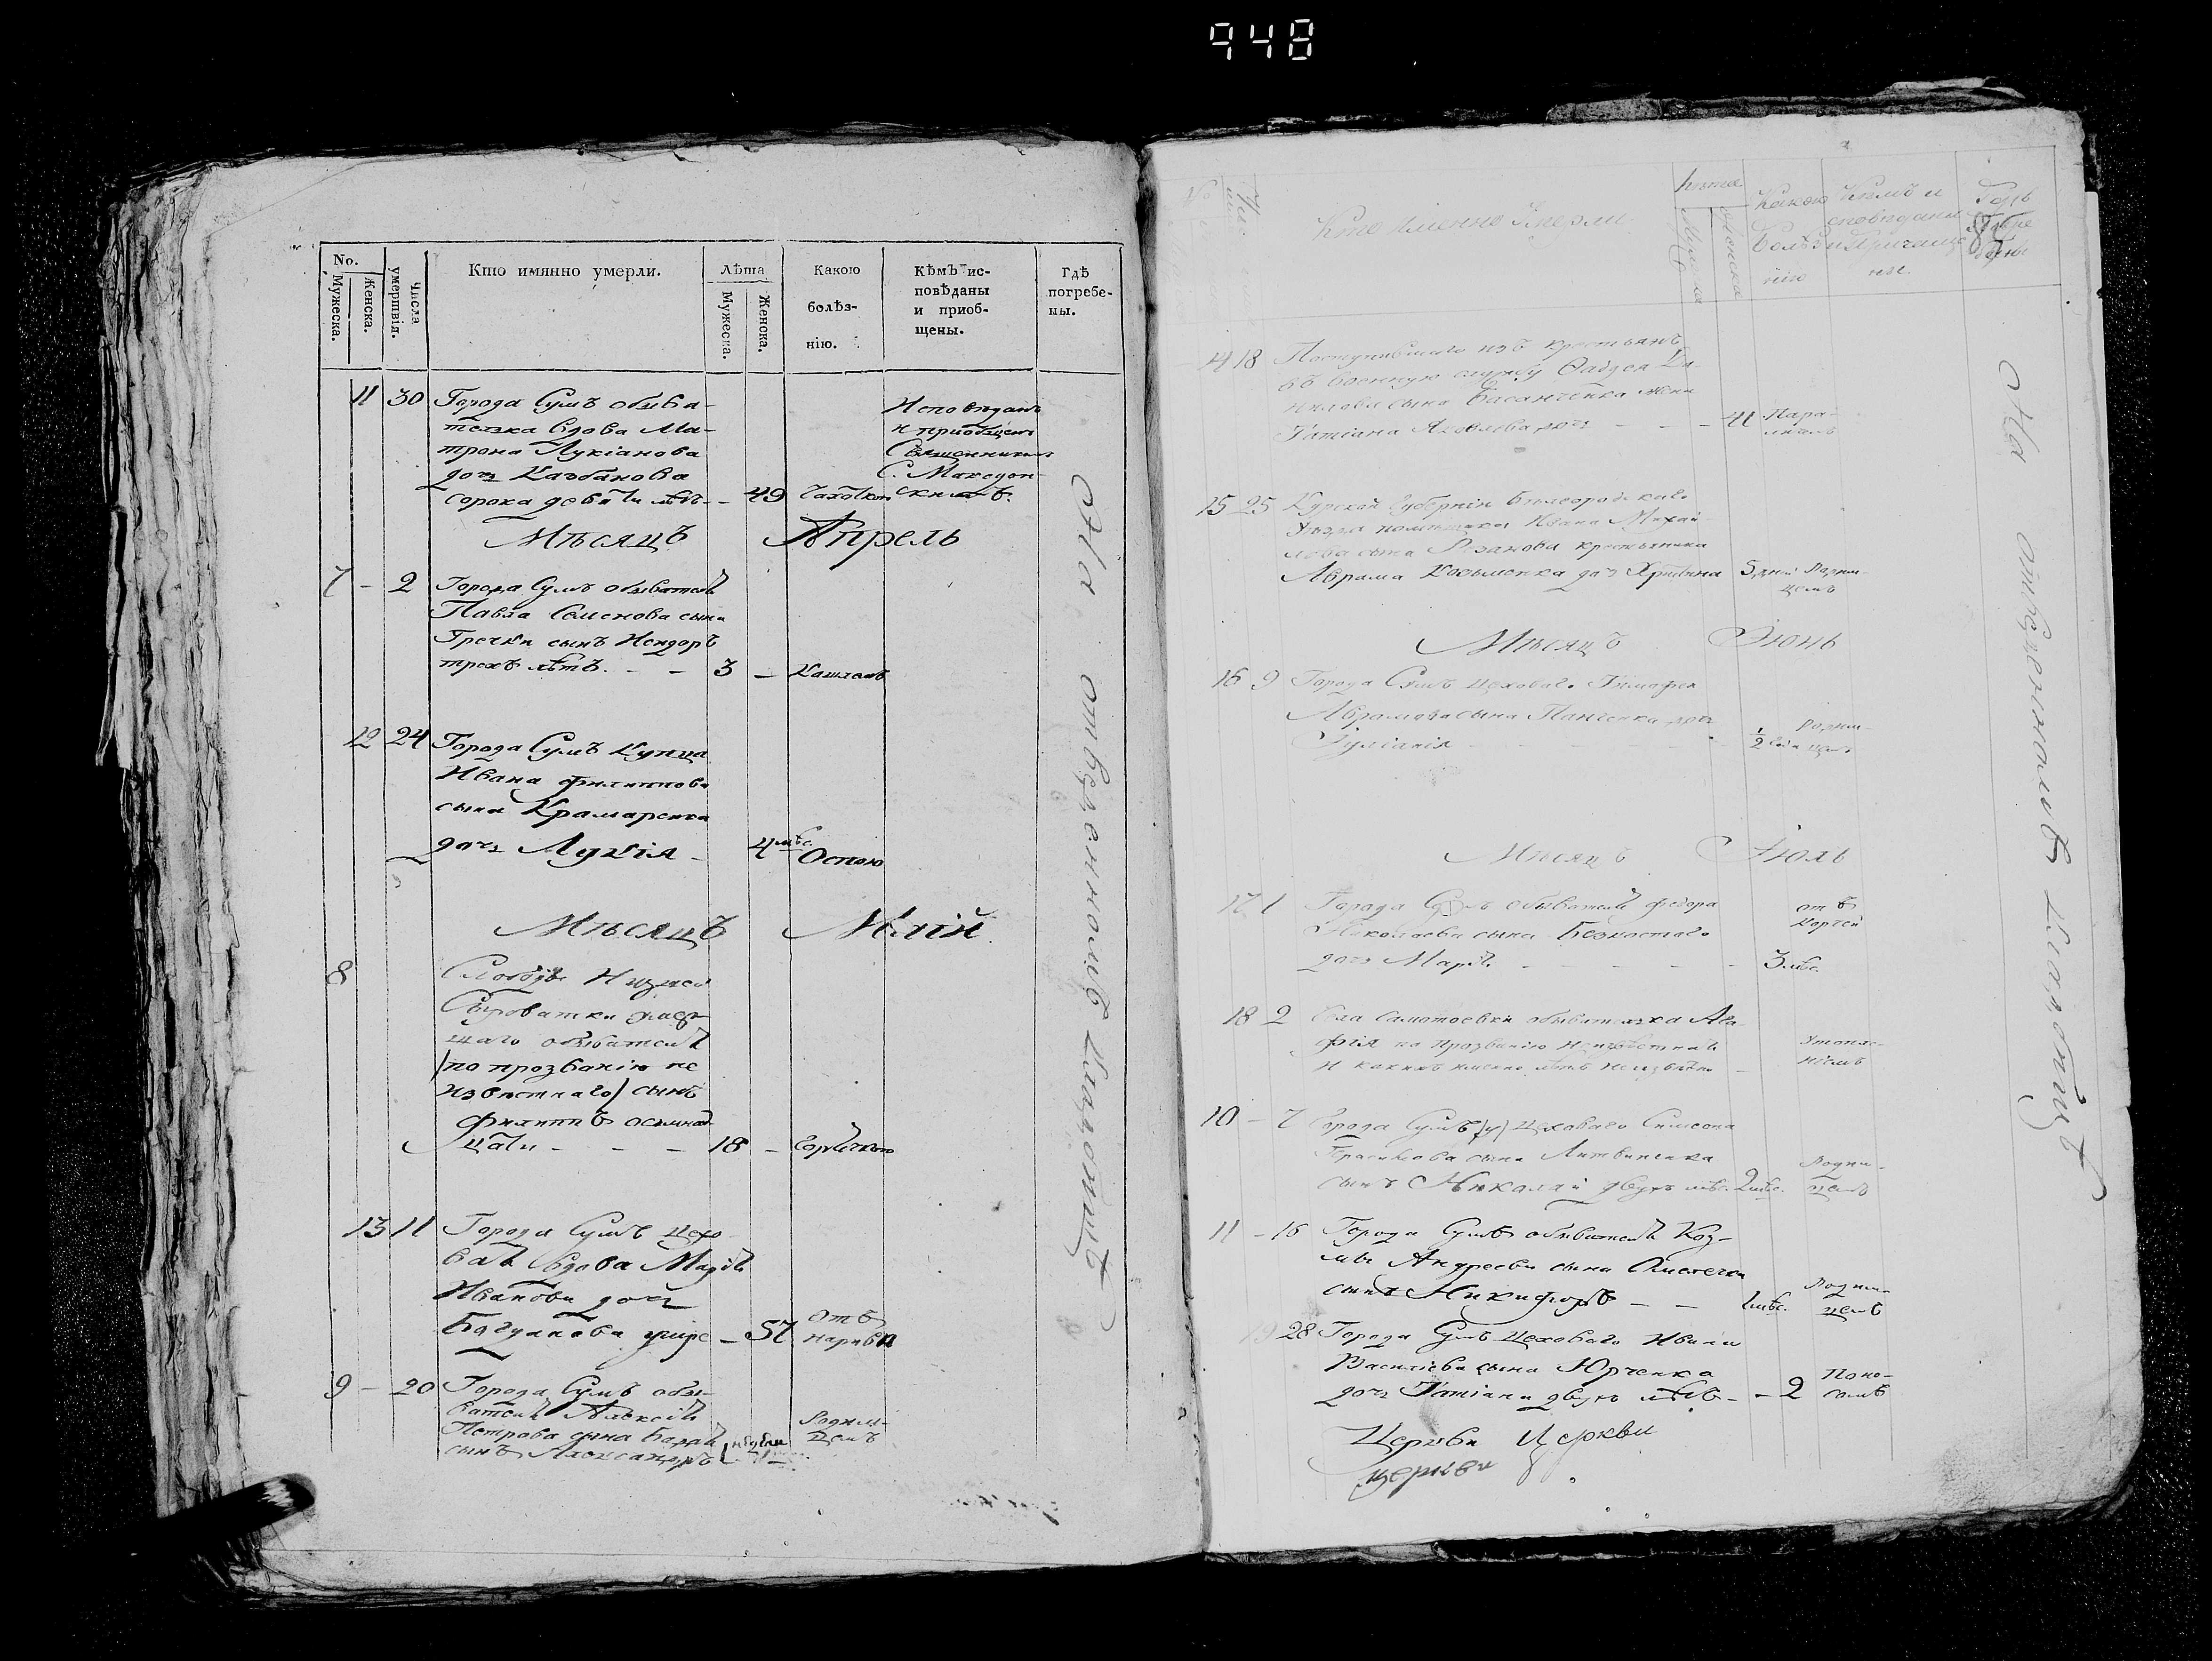 948
No.
Мужеска.
Женска.
Числа умертвія.
Кто имянно умерли.
Лѣта
Мужеска.
Женска.
Какою
болѣз-
нію.
Кѣмъ ис-
повѣданы
и приоб-
щены.
Гдѣ
погребе-
ны.
11 30 Города Сумъ обыва-
телка вдова Ма-
трона Лукіанова
дочь
сорока девяти лѣтъ - 49
Исповѣдана
и приобщена
Священникомъ
С. Македон-
скимъ.
Мѣсяцъ Апрель
7 - 2 Города Сумъ обывателя
Павла Семенова сына
Гречки сынъ Исидоръ
трехъ лѣтъ - - 3 - Кашлемъ
12 24 Города Сумъ Купца
Ивана Филиппова
сына Крамаренка
дочь Лукія - 4 мѣс. Оспою
Мѣсяцъ Маій
8 Слободы Нижней
Сыроватки
обывателя
/по прозванію не
извѣстнаго/ сынъ
Филиппъ осьмнад-
цати - - - 18 - Горячкою
13 11 Города Сумъ цехо-
вая вдова Марія
Иванова дочь
Богданова - 57 отъ
нарыва
9 - 20 Города Сумъ обы-
вателя Алексѣя
Петрова сына
сынъ Александръ
Родим-
цемъ
На отведенномъ кладбищѣ
Число
Кто имянно умерли
Лѣта
Мужеска
Женска
Какою
болѣз-
нію
Кѣмъ и
сповѣданы
и Причаще
ны.
Гдѣ
Погре
бены
14 18 Поступившаго изъ крестьянъ
въ военную службу Фадея Да-
нилова сына Басанченка жена
Татіана Яковлева дочь - - - 41 Пара-
личемъ
15 25 Курской Губерніи Бѣлгородскаго
Уѣзда помѣщика Ивана Михай-
лова сына крестьянина
Аврама Козьменка дочь Христина 5 дней Родим-
цемъ
Мѣсяцъ Іюнь
16 9 Города Сумъ цеховаго Тимофея
Абрамова сына Панченка дочь
Іуліанія - - - ½ года Родим-
цемъ
Мѣсяцъ Іюль
17 1 Города Сумъ обывателя Федора
Николаева сына Безкостаго
дочь Марія - - - 3 мѣс.
отъ
Корчей
18 2 Села Самотоевки обывателка Ага-
фія по прозванію неизвѣстная
и какихъ имянно лѣтъ неизвѣстно -
Утопле-
ніемъ
10 - 7 Города Сумъ цеховаго Симеона
Герасимова сына Литвиненка
сынъ Николай двухъ мѣс. 2 мѣс. Родим-
цемъ
11 - 16 Города Сумъ обывателя Коз-
мы Андреева сына Омелечка
сынъ Никифоръ - - 1 мѣс. Родим-
цемъ
19 28 Города Сумъ Цеховаго Ивана
Василіева сына Юрченка
дочь Татіана двухъ лѣтъ - - 2 Поно-
сомъ
Церкви Церкви
церкви
На отведенномъ кладбищѣ